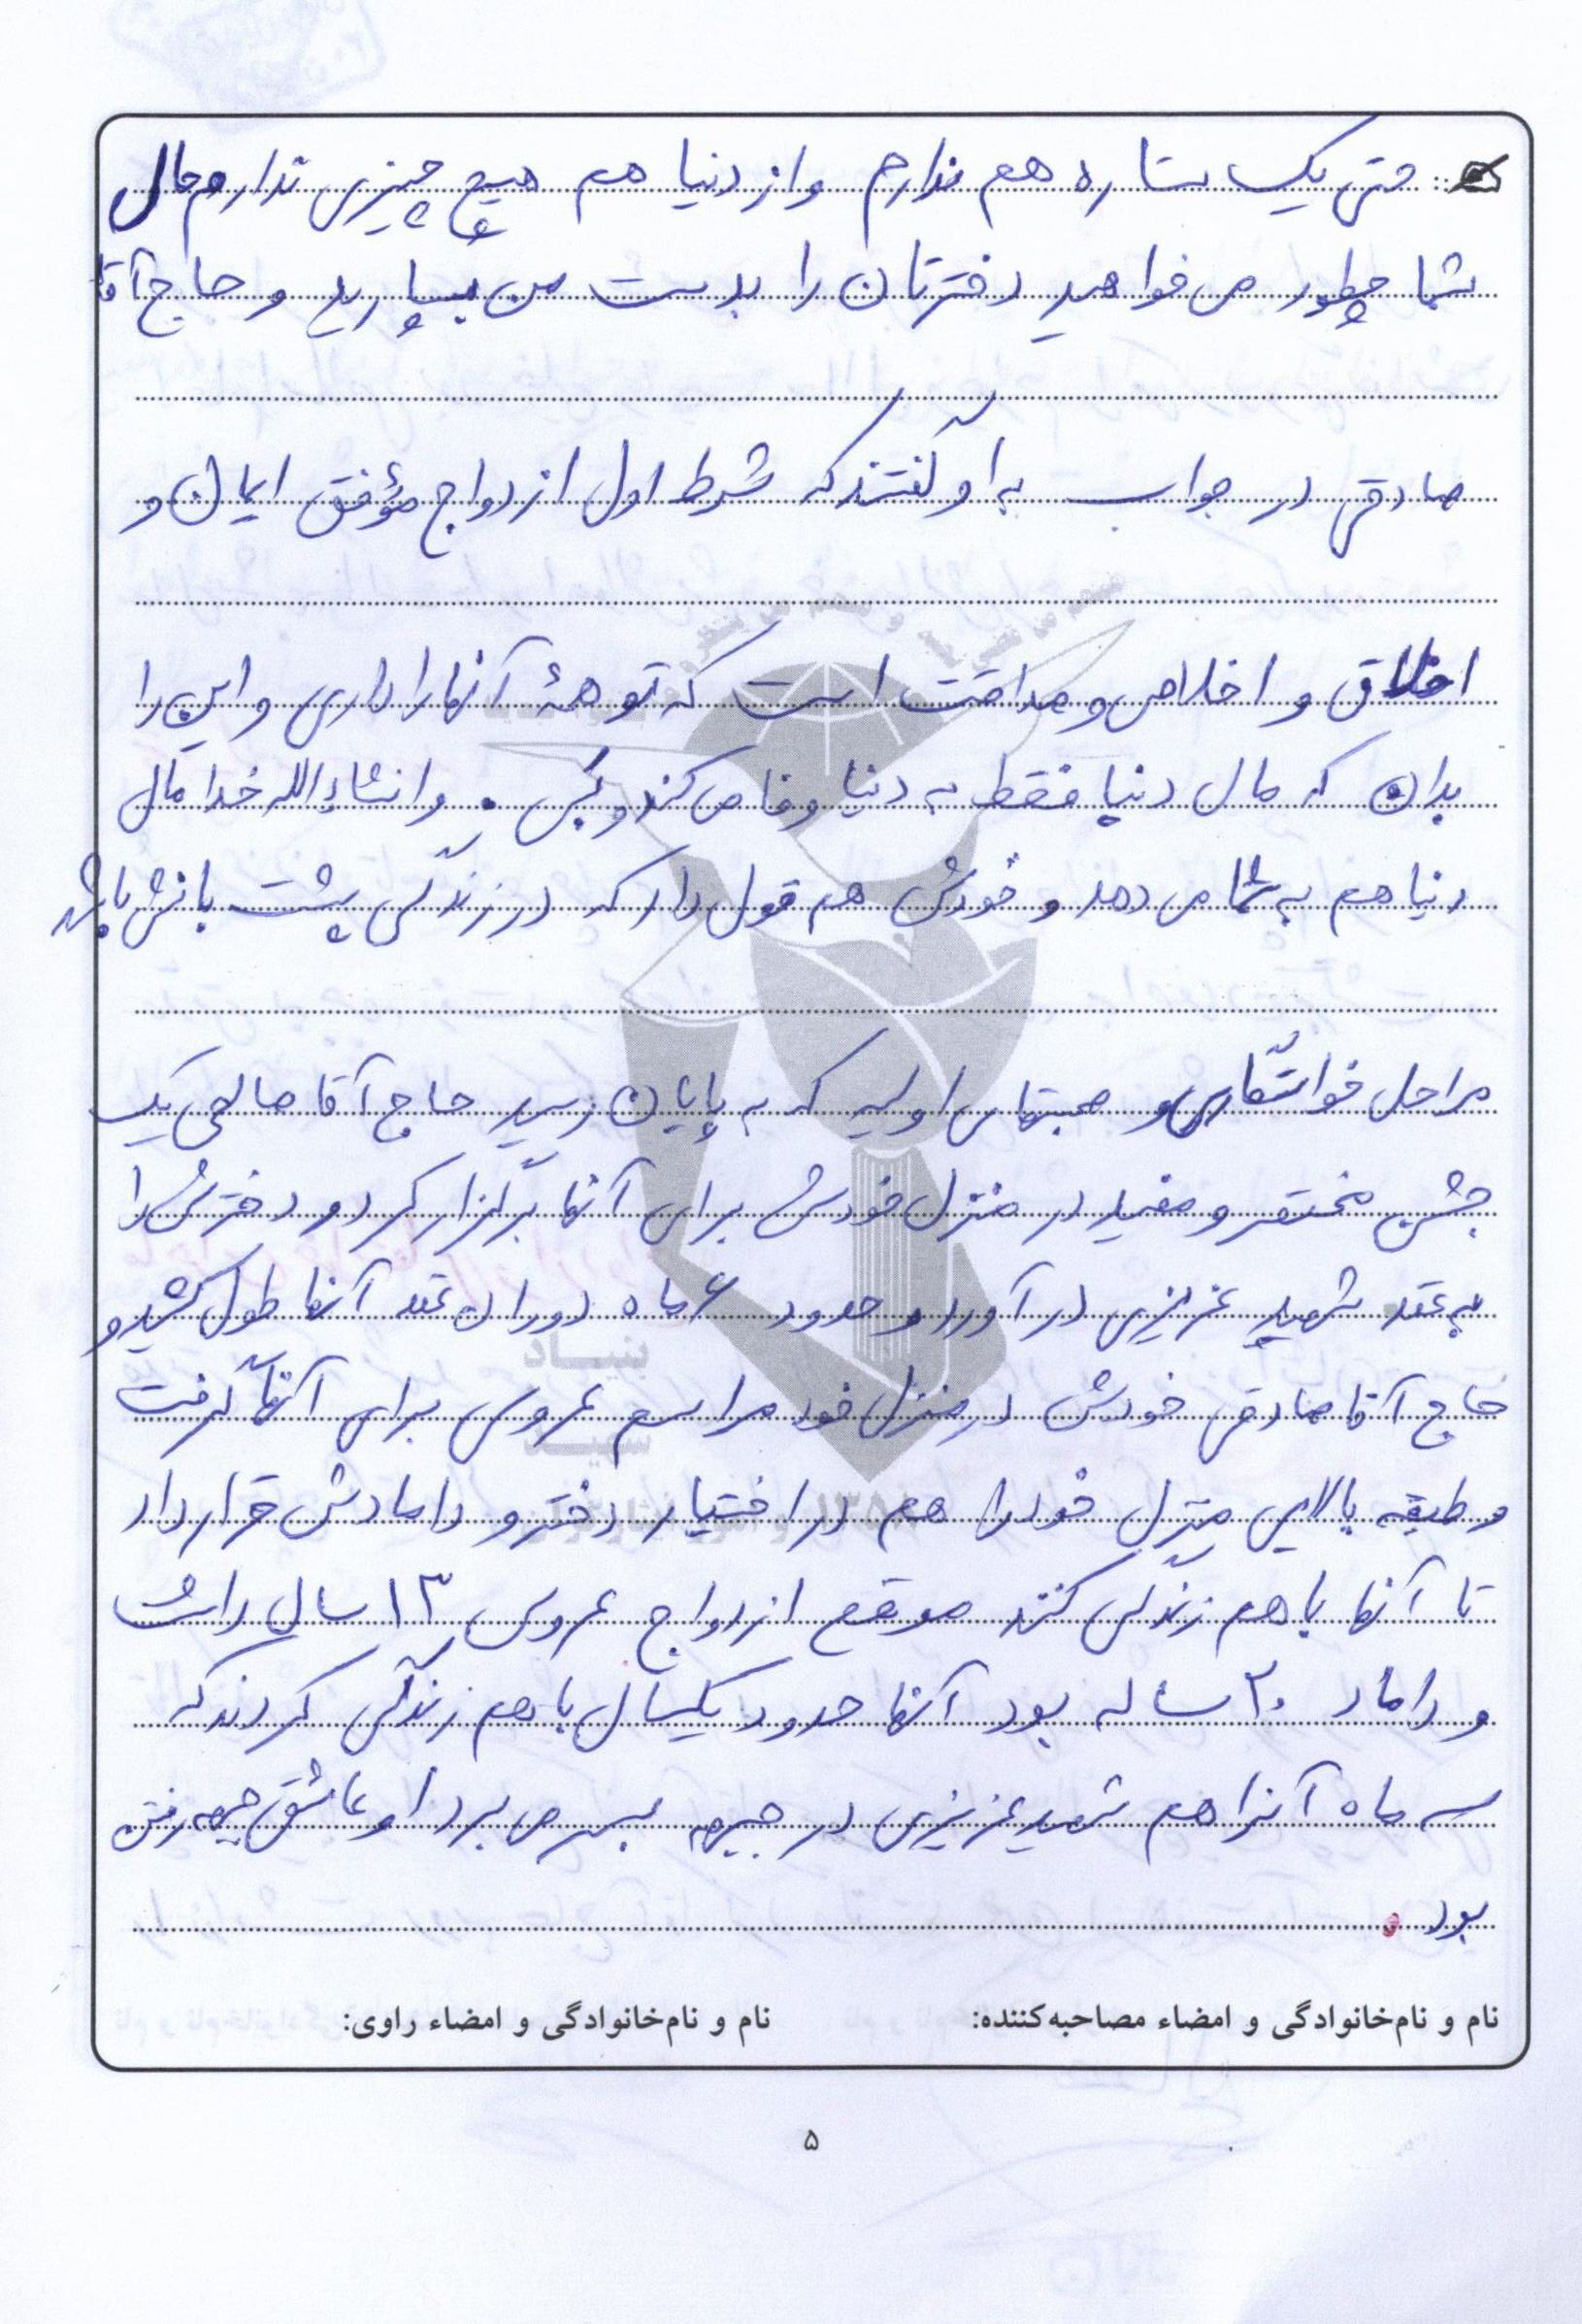 حتی یک ستاره هم ندارم و از دنیا هم هیچ چیزی ندارم و حال
شما چطور می خواهید دخترتان را بدست من بسپارید و حاج آقا
صادقی در جواب به او گفتند که شرط اول ازدواج مؤفق ایمان و
اخلاق و اخلاص و صداقت است که تو همۀ آنها را داری و این را
بدان که مال دنیا فقط به دنیا وفا می کند و بس . و انشاءالله خدا مال
دنیا هم به شما می دهد و خودش هم قول داد که در زندگی پشت باشد
مراحل خواستگاری و صحبتهای اولیه که به پایان رسید حاج آقا صالحی یک
جشن مختصر و مفید در منزل خودش برای آنها برگزار کرد و دخترش را
به عقد شهید عزیزی در آورد و حدود ۶ ماه دوران عقد آنها طول کشید و
حاج آقا صادقی خودش در منزل خود مراسم عروسی برای آنها گرفت
و طبقه بالایی منزل خود را هم در اختیار دختر و دامادش قرار داد
تا آنها با هم زندگی کنند موقع ازدواج عروس ۱۳ سال داشت
و داماد ۲۰ ساله بود آنها حدود یکسال با هم زندگی کردند که
سه ماه آنرا هم شهید عزیزی در جبهه بسر می برد او عاشق جبهه رفتن
بود .
نام و نام‌خانوادگی و امضاء مصاحبه‌کننده: نام و نام‌خانوادگی و امضاء راوی:
۵